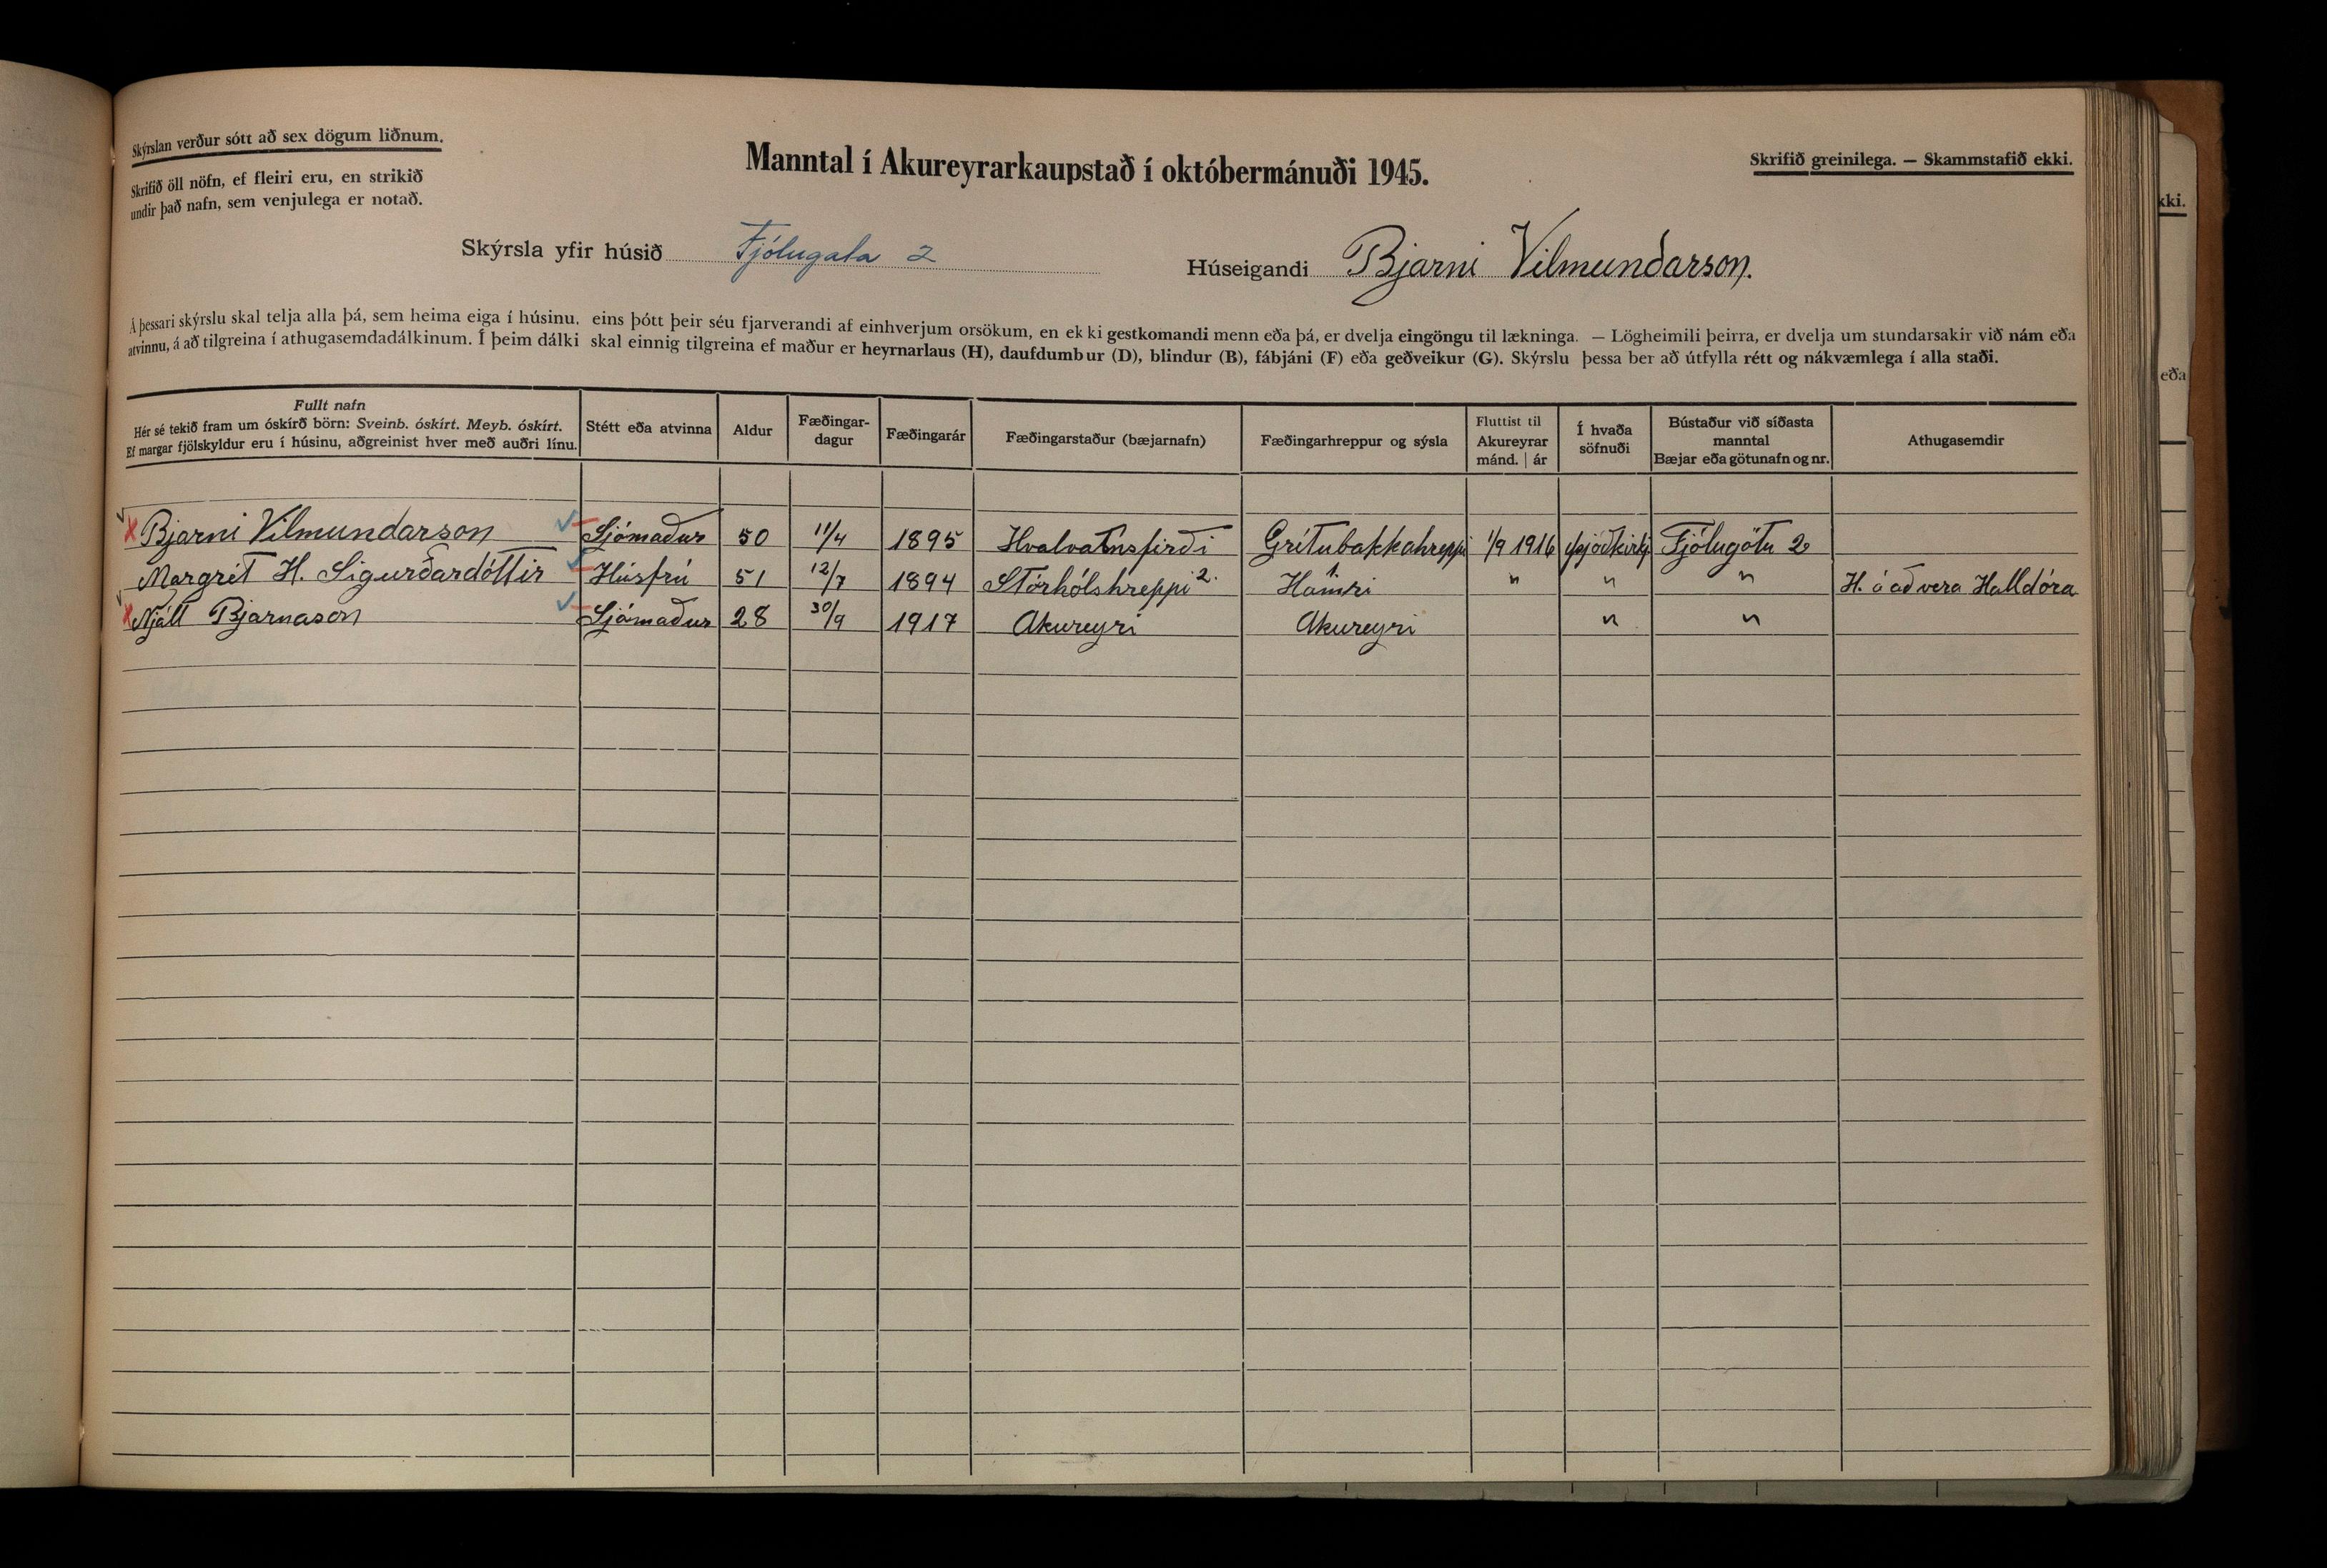 Skýrslan verður sótt að sex dögum liðnum.
Skrifið öll nöfn, ef fleiri eru, en strikið
undir það nafn, sem venjulega er notað.
Manntal í Akureyrarkaupstað í októbermánuði 1945.
Skrifið greinilega. — Skammstafið ekki.
Skýrsla yfir húsið Fjólugata 2
Húseigandi Bjarni Vilmundarson.
Á þessari skýrslu skal telja alla þá, sem heima eiga í húsinu, eins þótt þeir séu fjarverandi af einhverjum orsökum, en ekki gestkomandi menn eða þá, er dvelja eingöngu til lækninga. — Lögheimili þeirra, er dvelja um stundarsakir við nám eða
atvinnu, á að tilgreina í athugasemdadálkinum. Í þeim dálki skal einnig tilgreina ef maður er heyrnarlaus (H), daufdumbur (D), blindur (B), fábjáni (F) eða geðveikur (G). Skýrslu þessa ber að útfylla rétt og nákvæmlega í alla staði.
Fullt nafn
Hér sé tekið fram um óskírð börn: Sveinb. óskírt. Meyb. óskírt.
Ef margar fjölskyldur eru í húsinu, aðgreinist hver með auðri línu.
Stétt eða atvinna
Aldur
Fæðingar-
dagur
Fæðingarár
Fæðingarstaður (bæjarnafn)
Fæðingarhreppur og sýsla
Fluttist til
Akureyrar
mánd. | ár
Í hvaða
söfnuði
Bústaður við síðasta
manntal
Bæjar eða götunafn og nr.
Athugasemdir
Bjarni Vilmundarson Sjómaður 50 11/4 1895 Hvalvatnsfirði Grítubakkahreppi 1/9 1916 þjóðkirkj Fjólugötu 2
Margrét H. Sigurðardóttir Húsfrú 51 12/7 1894 Stórhólshreppi 2. Hamri 1. " " " H. á að vera Halldóra
Njáll Bjarnason Sjómaður 28 30/9 1917 Akureyri Akureyri " "
kki.
eða